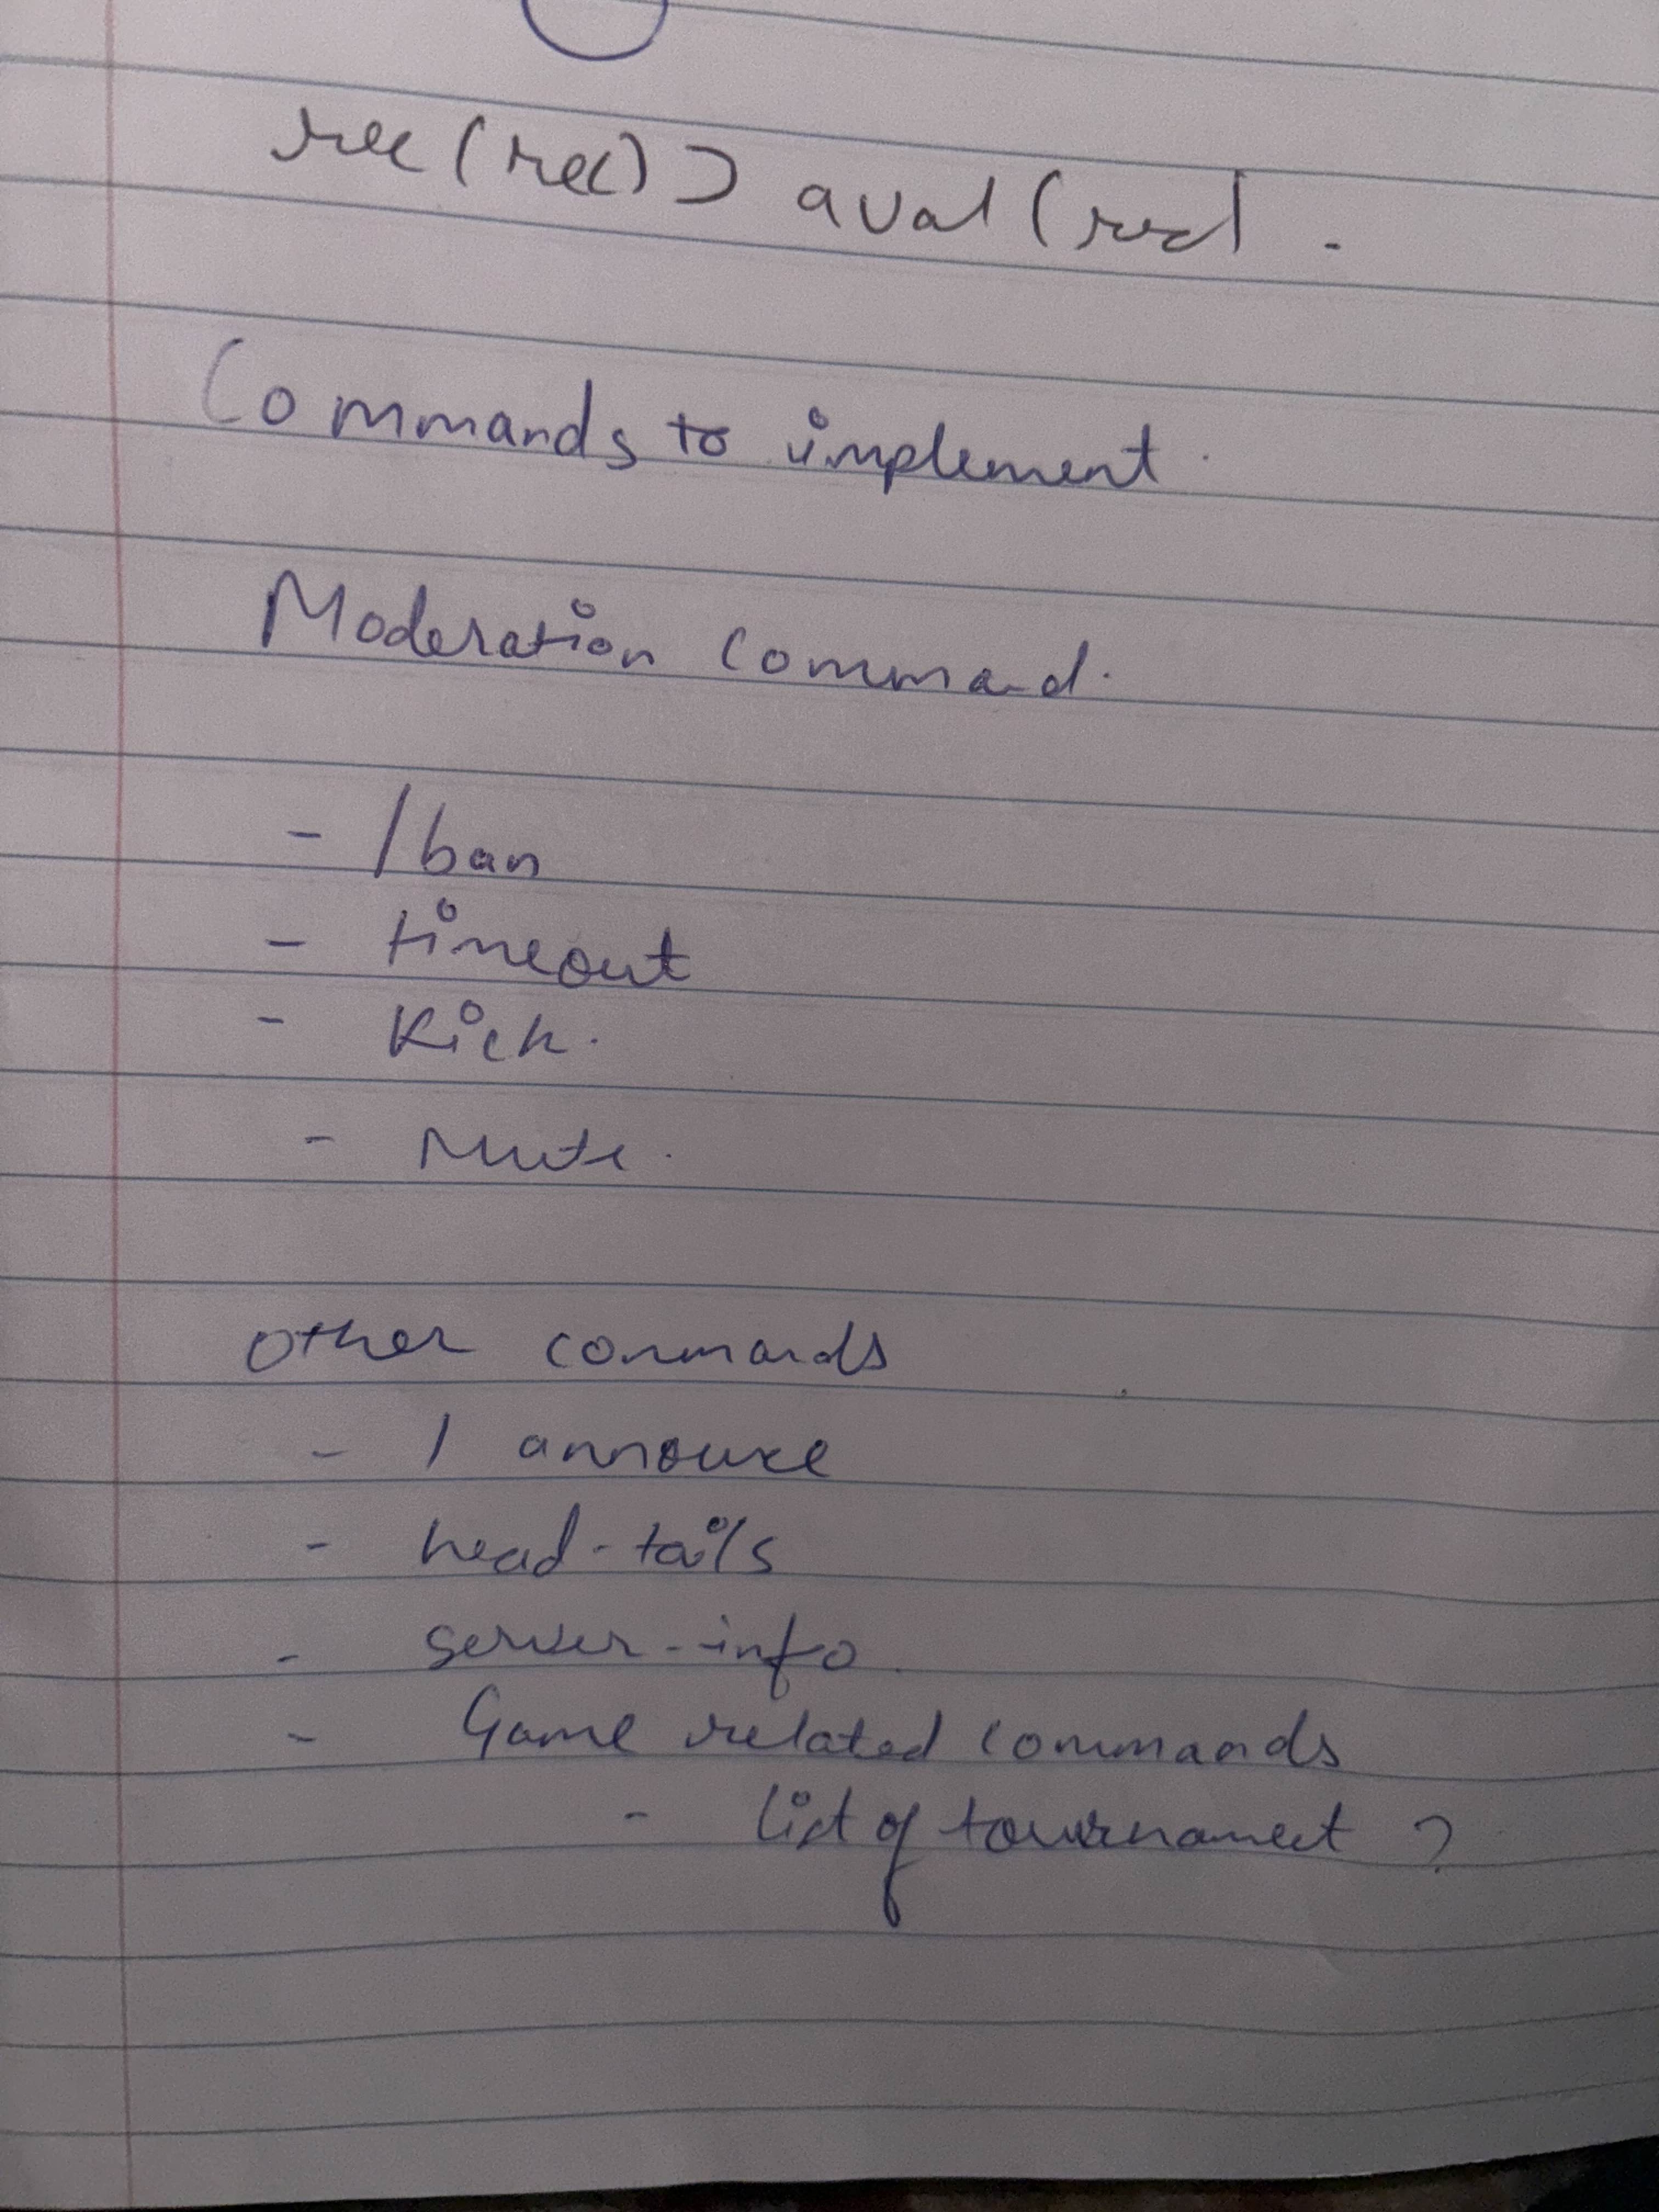 rec (rec) > aval (rec) .
Commands to implement .
Moderation command .
- /ban
- timeout
- Kick .
- Mute .
Other commands
- / announce
- head-tails
- server-info .
- Game related commands
- list of tournament ?